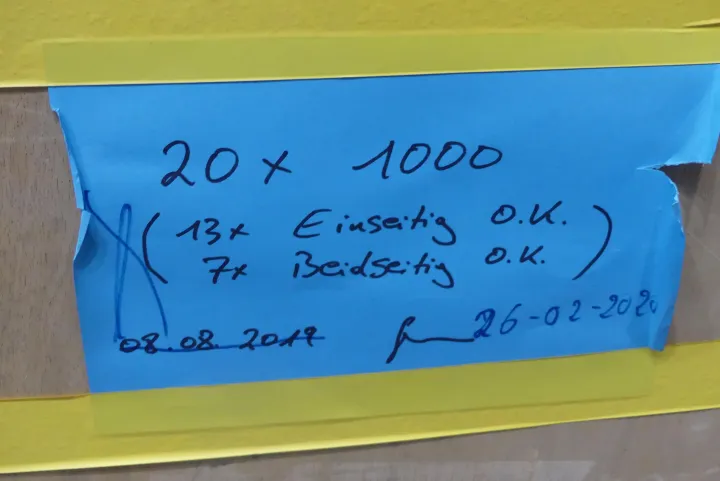 20 x 1000
( 13x Einseitig O.K. )
7x Beidseitig O.K.
08.08.2019
26-02-2020